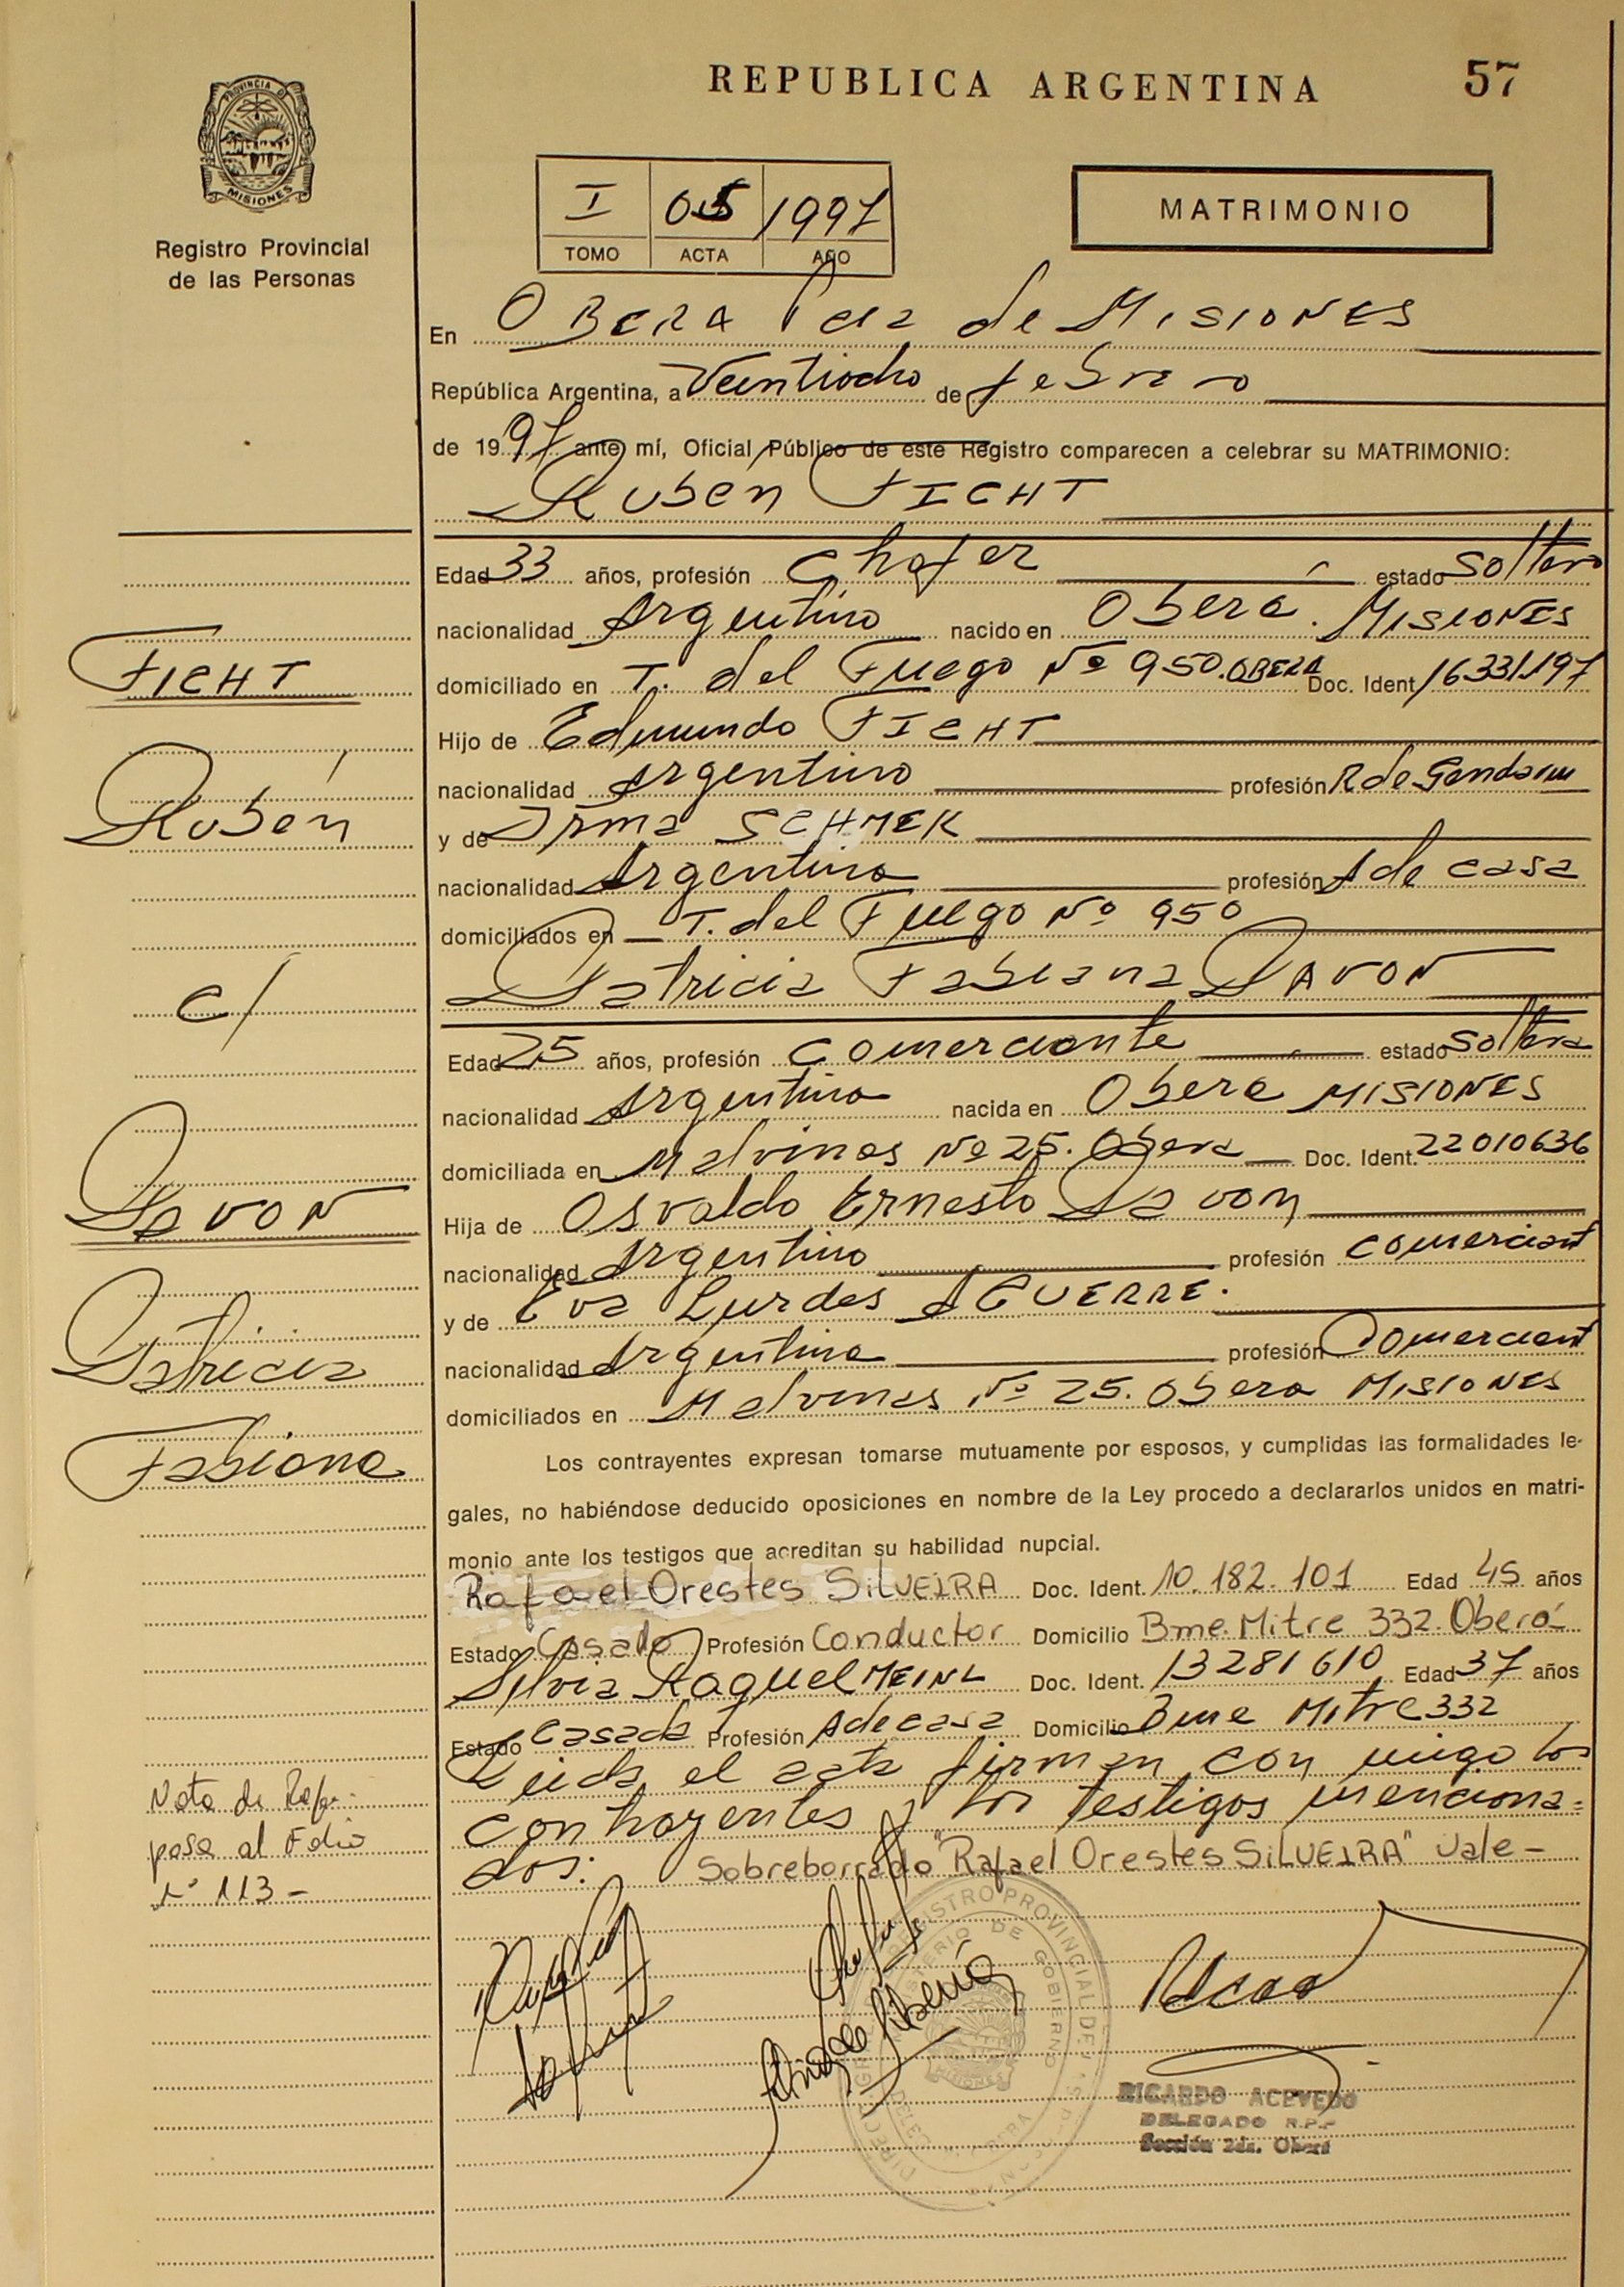 REPUBLICA ARGENTINA 57
PROVINCIA DE
MISIONES
Registro Provincial
de las Personas
I 05 1997
TOMO ACTA AÑO
MATRIMONIO
En OBERA Pcia de MISIONES
República Argentina, a Veintiocho de febrero
de 1997 ante mí, Oficial Público de este Registro comparecen a celebrar su MATRIMONIO:
Ruben FICHT
Edad 33 años, profesión Chofer estado soltero
nacionalidad Argentino nacido en Oberá. MISIONES
domiciliado en T. del Fuego Nº 950. OBERA Doc. Ident 16331197
Hijo de Edmundo FICHT
nacionalidad Argentino profesión R de Gendarm
y de Irma SCHMEK
nacionalidad Argentina profesión A de casa
domiciliados en T. del Fuego Nº 950
Patricia Fabiana DAVON
Edad 25 años, profesión Comerciante estado soltera
nacionalidad Argentina nacida en Obera MISIONES
domiciliada en Malvinas Nº 25. Obera Doc. Ident. 22010636
Hija de Osvaldo Ernesto Davon
nacionalidad Argentino profesión comerciant
y de Eva Lurdes AGUERRE.
nacionalidad Argentina profesión Comerciant
domiciliados en Malvinas Nº 25. Obera MISIONES
Los contrayentes expresan tomarse mutuamente por esposos, y cumplidas las formalidades le-
gales, no habiéndose deducido oposiciones en nombre de la Ley procedo a declararlos unidos en matri-
monio ante los testigos que acreditan su habilidad nupcial.
Rafael Orestes SILVEIRA Doc. Ident. 10.182.101 Edad 45 años
Estado Casado Profesión Conductor Domicilio Bme. Mitre 332. Oberá
Silvia Raquel MEINL Doc. Ident. 13281610 Edad 37 años
Estado Casada Profesión A de casa Domicilio Bme Mitre 332
Leida el acta firman con migo los
contrayentes y los testigos menciona=
dos: Sobreborrado "Rafael Orestes SILVEIRA" Vale-
FICHT
Rubén
c/
DAVON
Patricia
Fabiana
Nota de Refe.
pasa al Folio
Nº 113-
REGISTRO PROVINCIAL DE
MINISTERIO DE GOBIERNO
MISIONES
RICARDO ACEVEDO
DELEGADO R.P.P
Sección 2da. Oberá